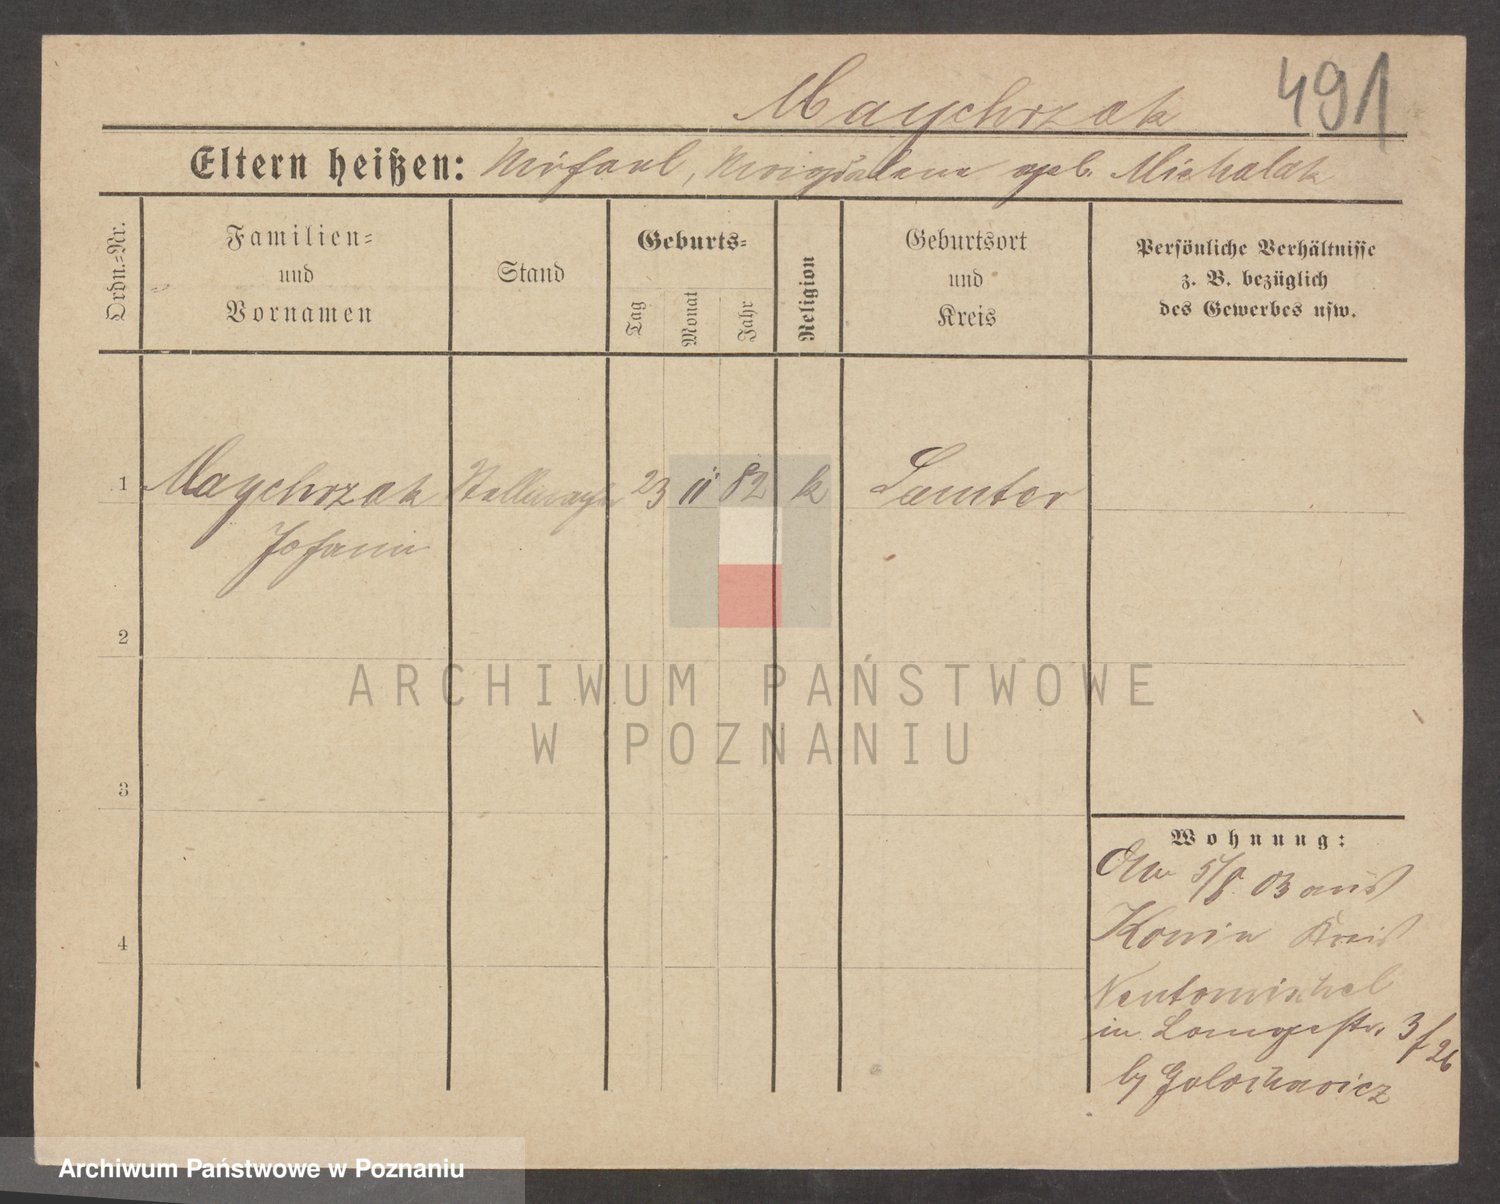 Maychrzak 491
Eltern heißen: Michael, Magdalena geb. Michalak
Ordn.-Nr.
Familien-
und
Vornamen
Stand
Geburts-
Tag
Monat
Jahr
Religion
Geburtsort
und
Kreis
Persönliche Verhältnisse
z. B. bezüglich
des Gewerbes usw.
1 Maychrzak 23 11 82 k Samter
Johann
2
3
4
Wohnung:
5/8 03 aus
Konin Kreis
Neutomischel
in Langestr. 3
by
ARCHIWUM PAŃSTWOWE
W POZNANIU
Archiwum Państwowe w Poznaniu